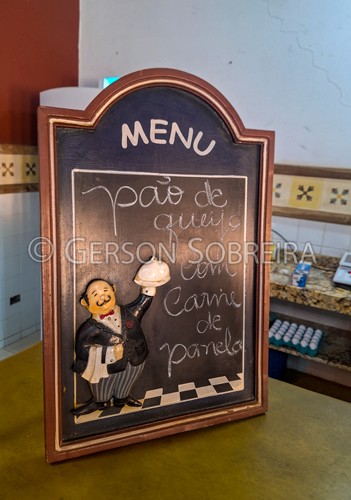 MENU
pão de
queijo
© GERSON SOBREIRA
com
Carne
de
panela